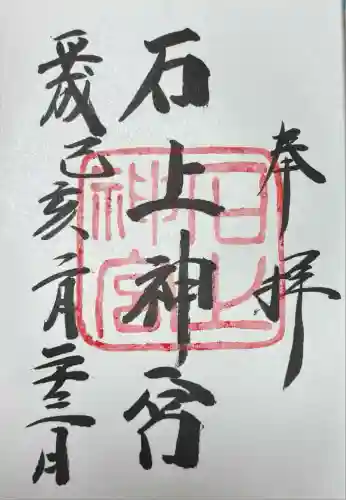 奉拝
石上神宮
平成己亥二月二十三日
石上神宮